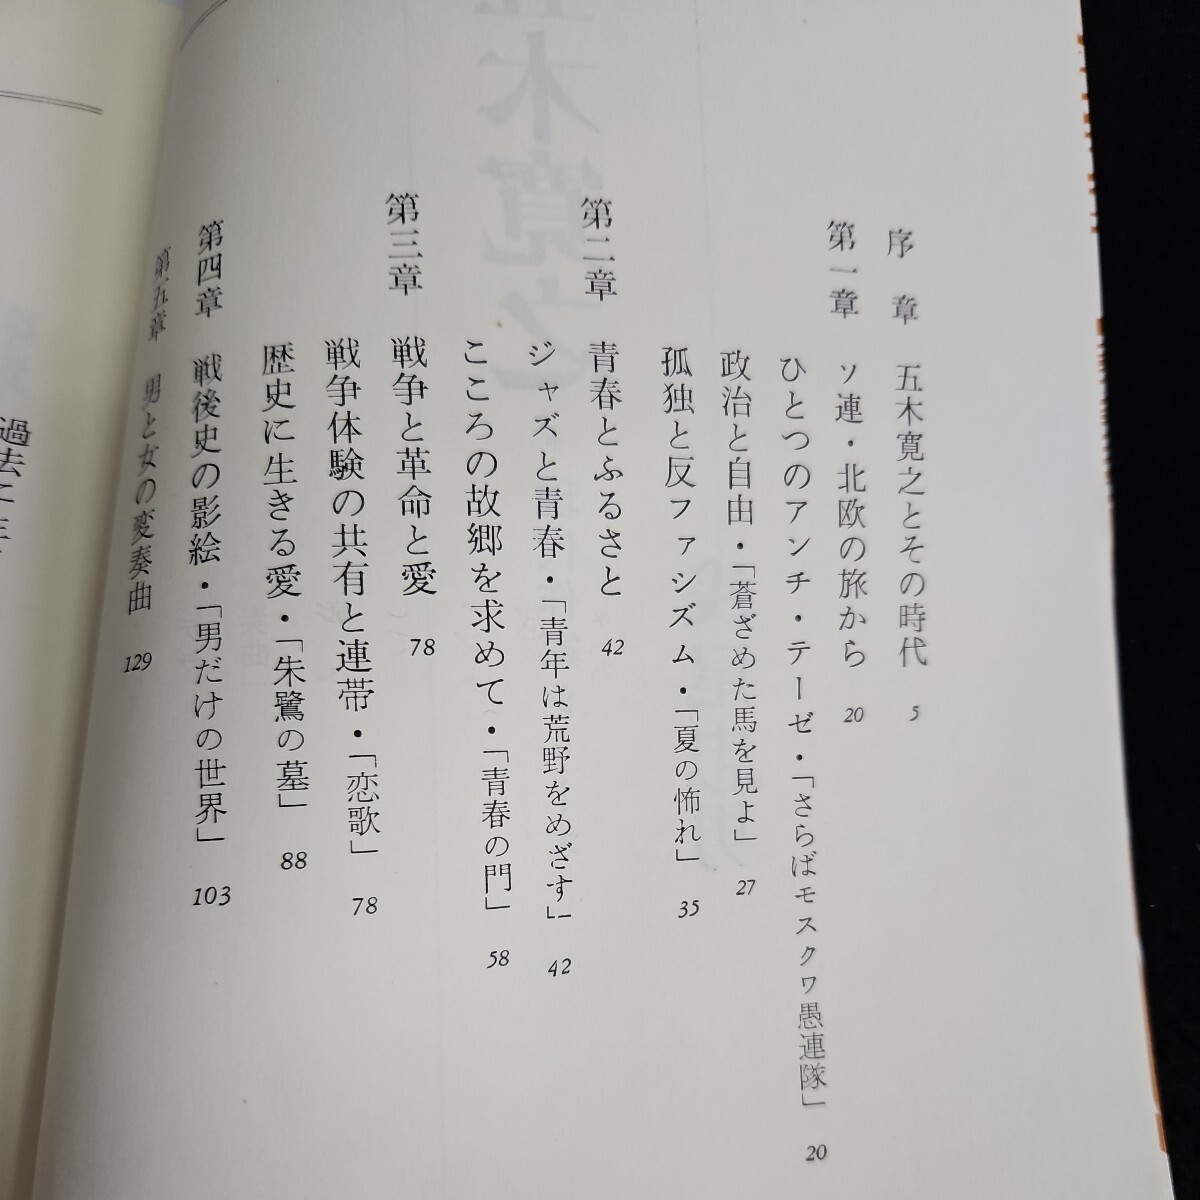 序章 五木寛之とその時代 5
第一章 ソ連・北欧の旅から 20
ひとつのアンチ・テーゼ・「さらばモスクワ愚連隊」 20
政治と自由・「蒼ざめた馬を見よ」 27
孤独と反ファシズム・「夏の怖れ」 35
第二章 青春とふるさと 42
ジャズと青春・「青年は荒野をめざす」 42
こころの故郷を求めて・「青春の門」 58
第三章 戦争と革命と愛 78
戦争体験の共有と連帯・「恋歌」 78
歴史に生きる愛・「朱鷺の墓」 88
第四章 戦後史の影絵・「男だけの世界」 103
第五章 男と女の変奏曲 129
過去に